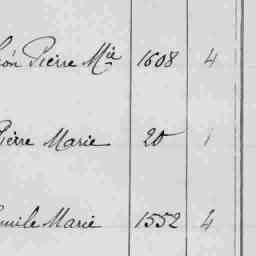 Léon Pierre Mie 1608 4
Pierre Marie 20 1
Emile Marie 1552 4